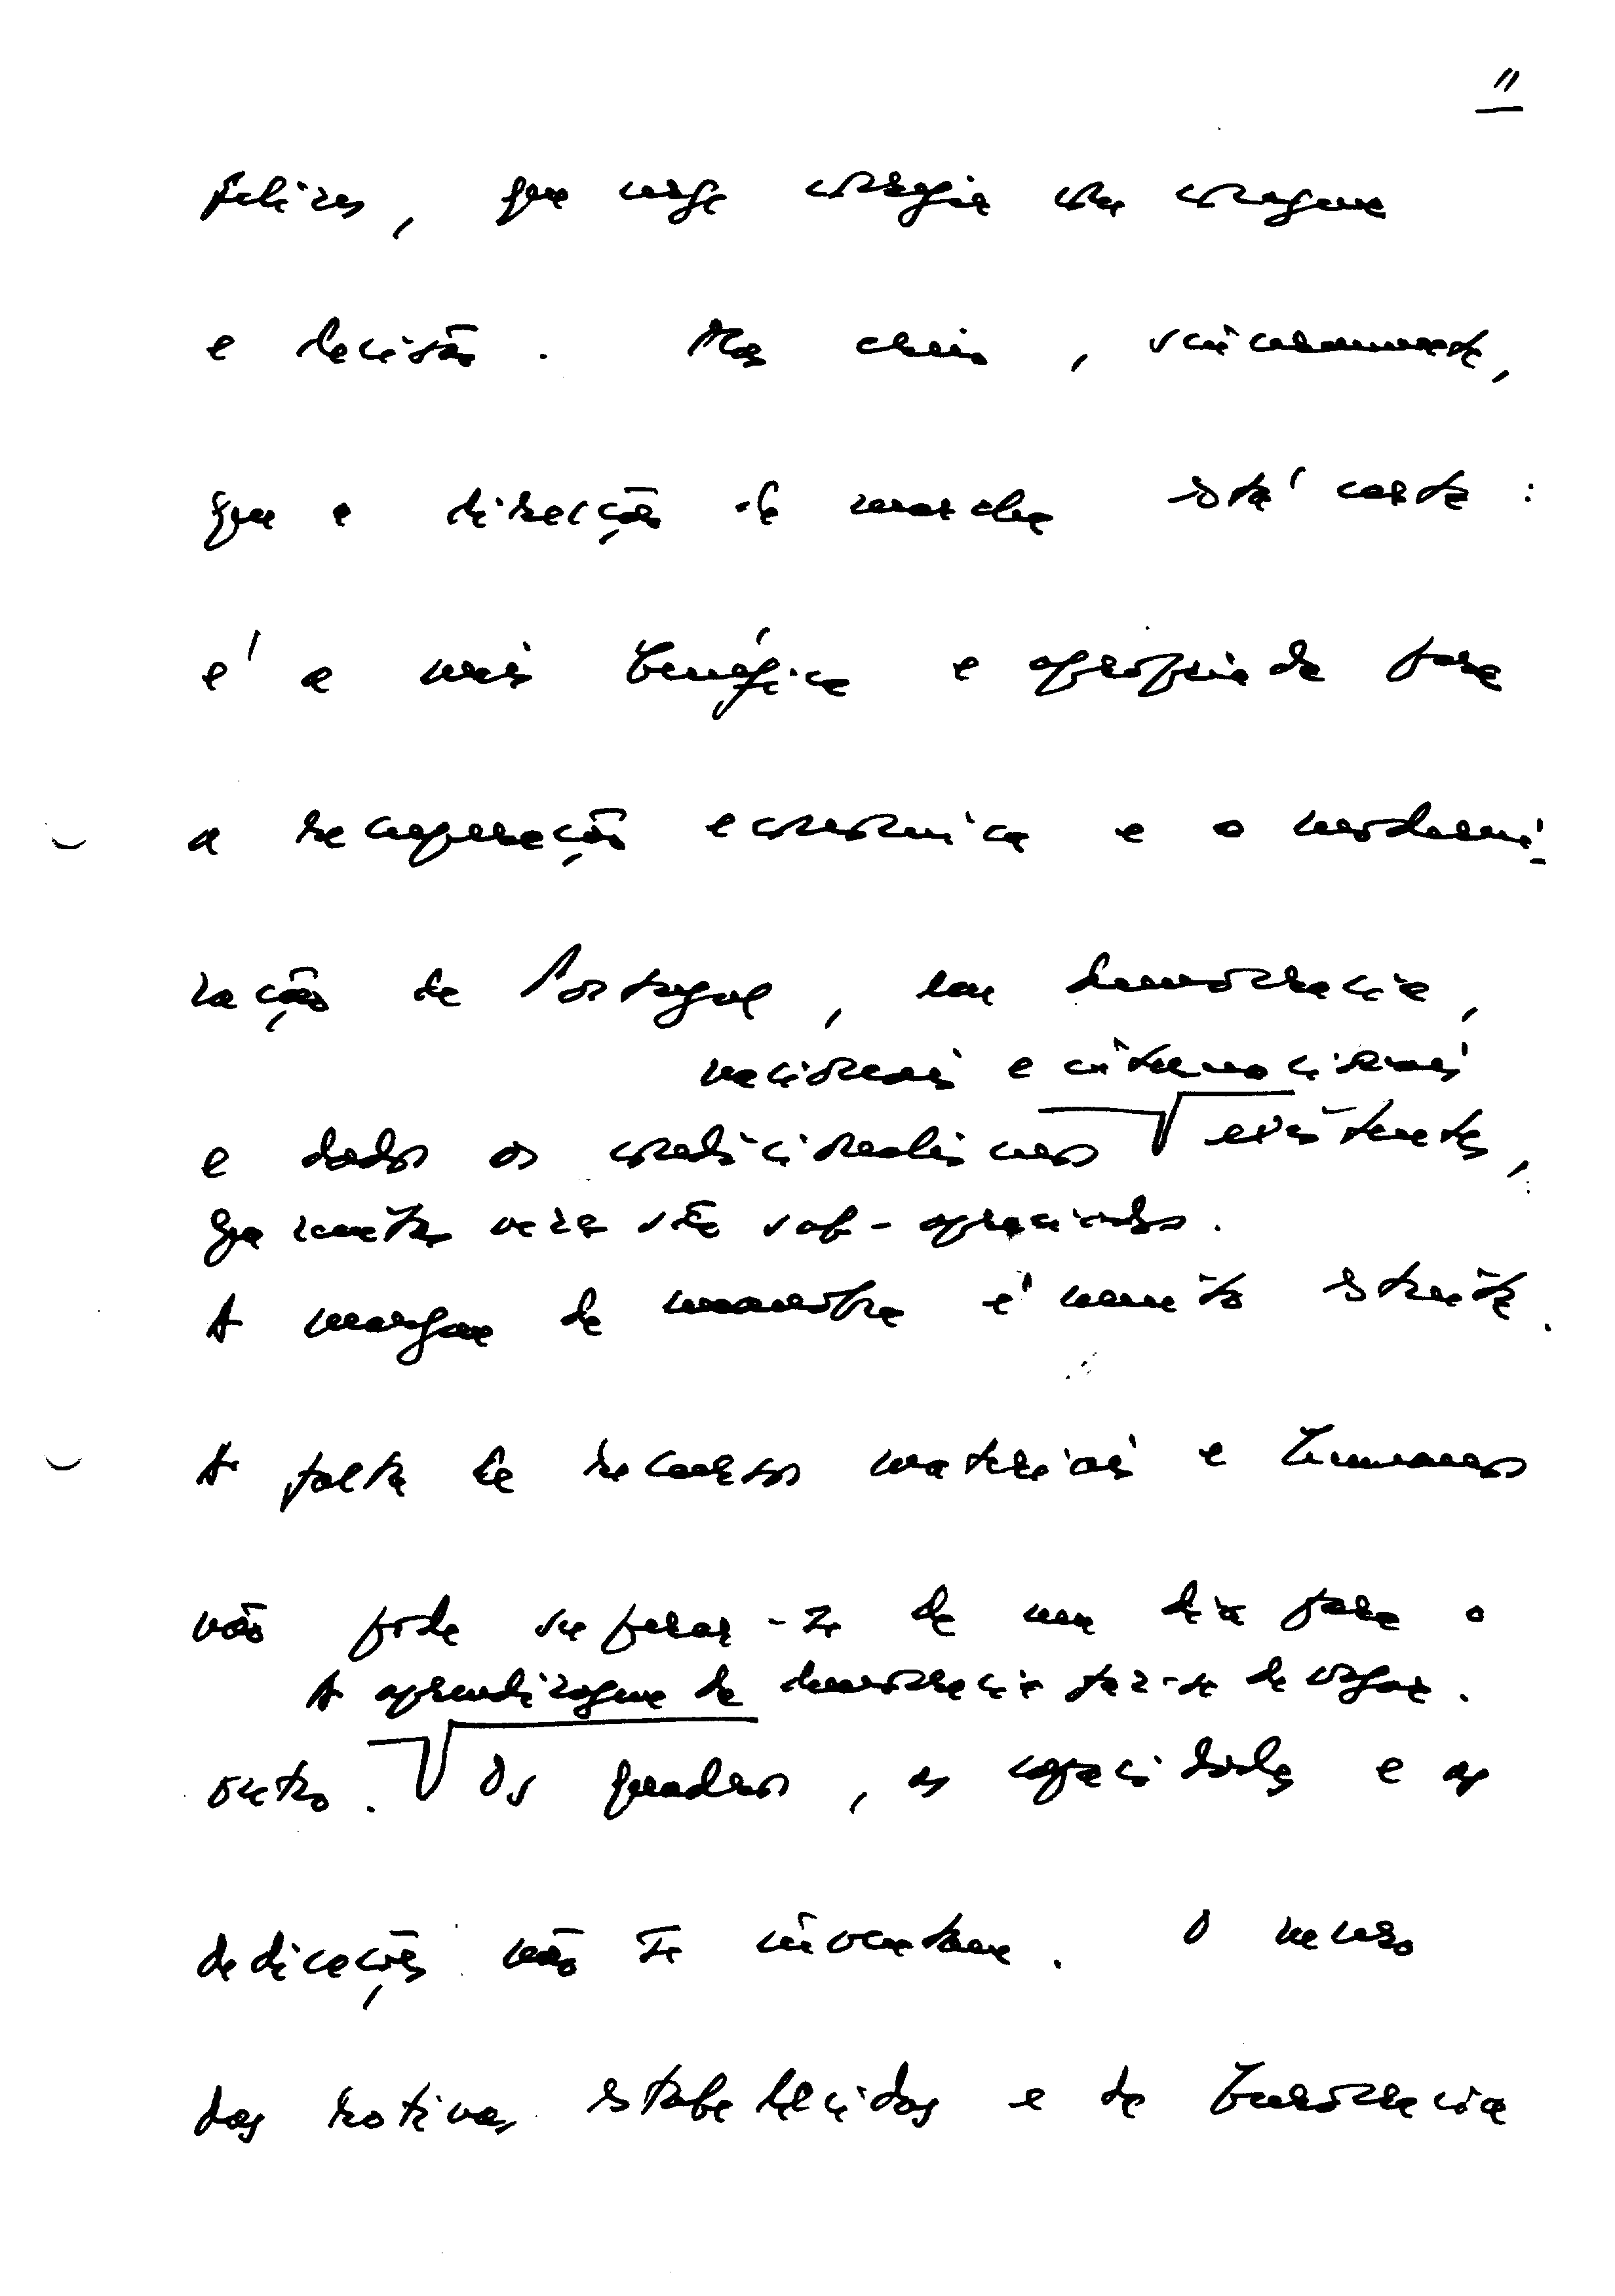 11
felizes, que urge corrigir com coragem
e decisão. Mas creio, sinceramente,
que a direcção de marcha está certa:
é a mais benéfica e apropriada para
a recuperação económica e a moderni-
zação de Portugal, em democracia,
nacionais e internacionais
e dados os condicionalismos existentes,
que muita vez são sub-apreciados.
A margem de manobra é muito estreita.
A falta de recursos materiais e humanos
não pode superar-se de um dia para o
A aprendizagem da democracia faz-se devagar.
outro. Os quadros, as capacidades e as
dedicações não se inventam. O
das rotinas estabelecidas e da burocracia